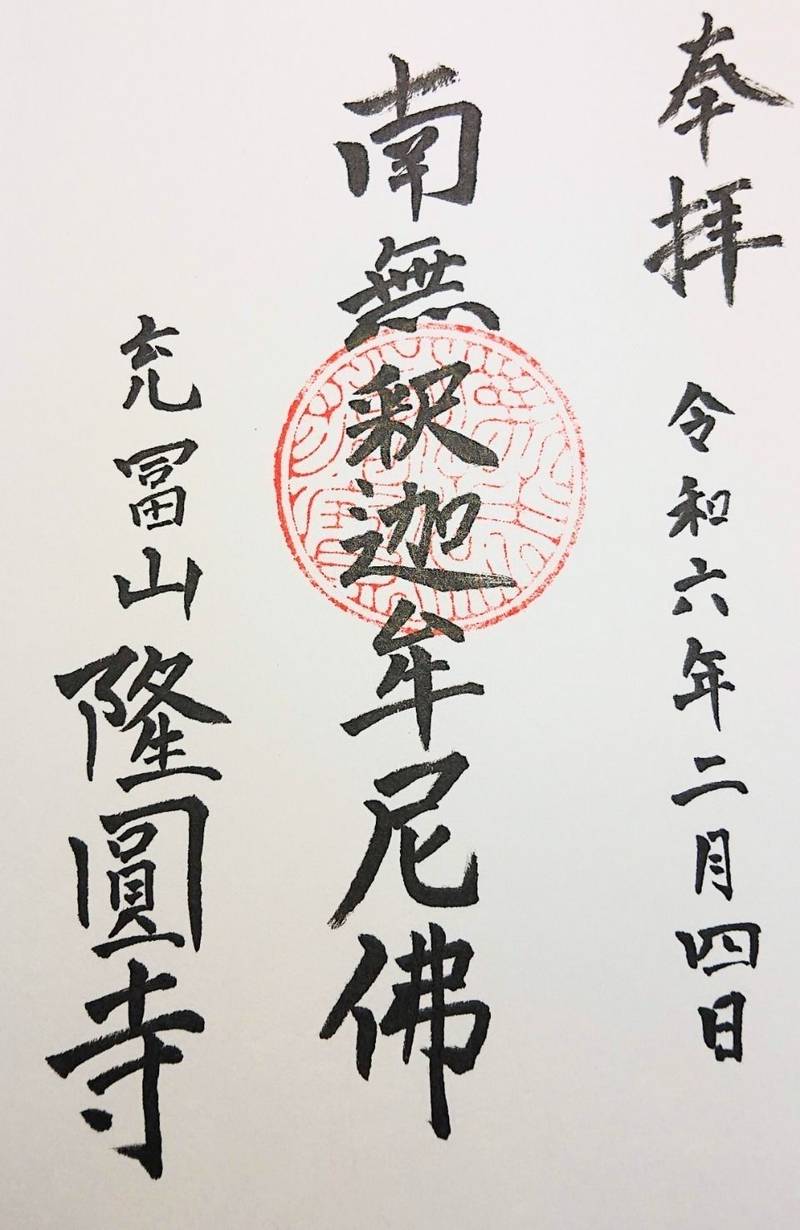 奉拝 令和六年二月四日
南無釈迦牟尼佛
充冨山 隆圓寺